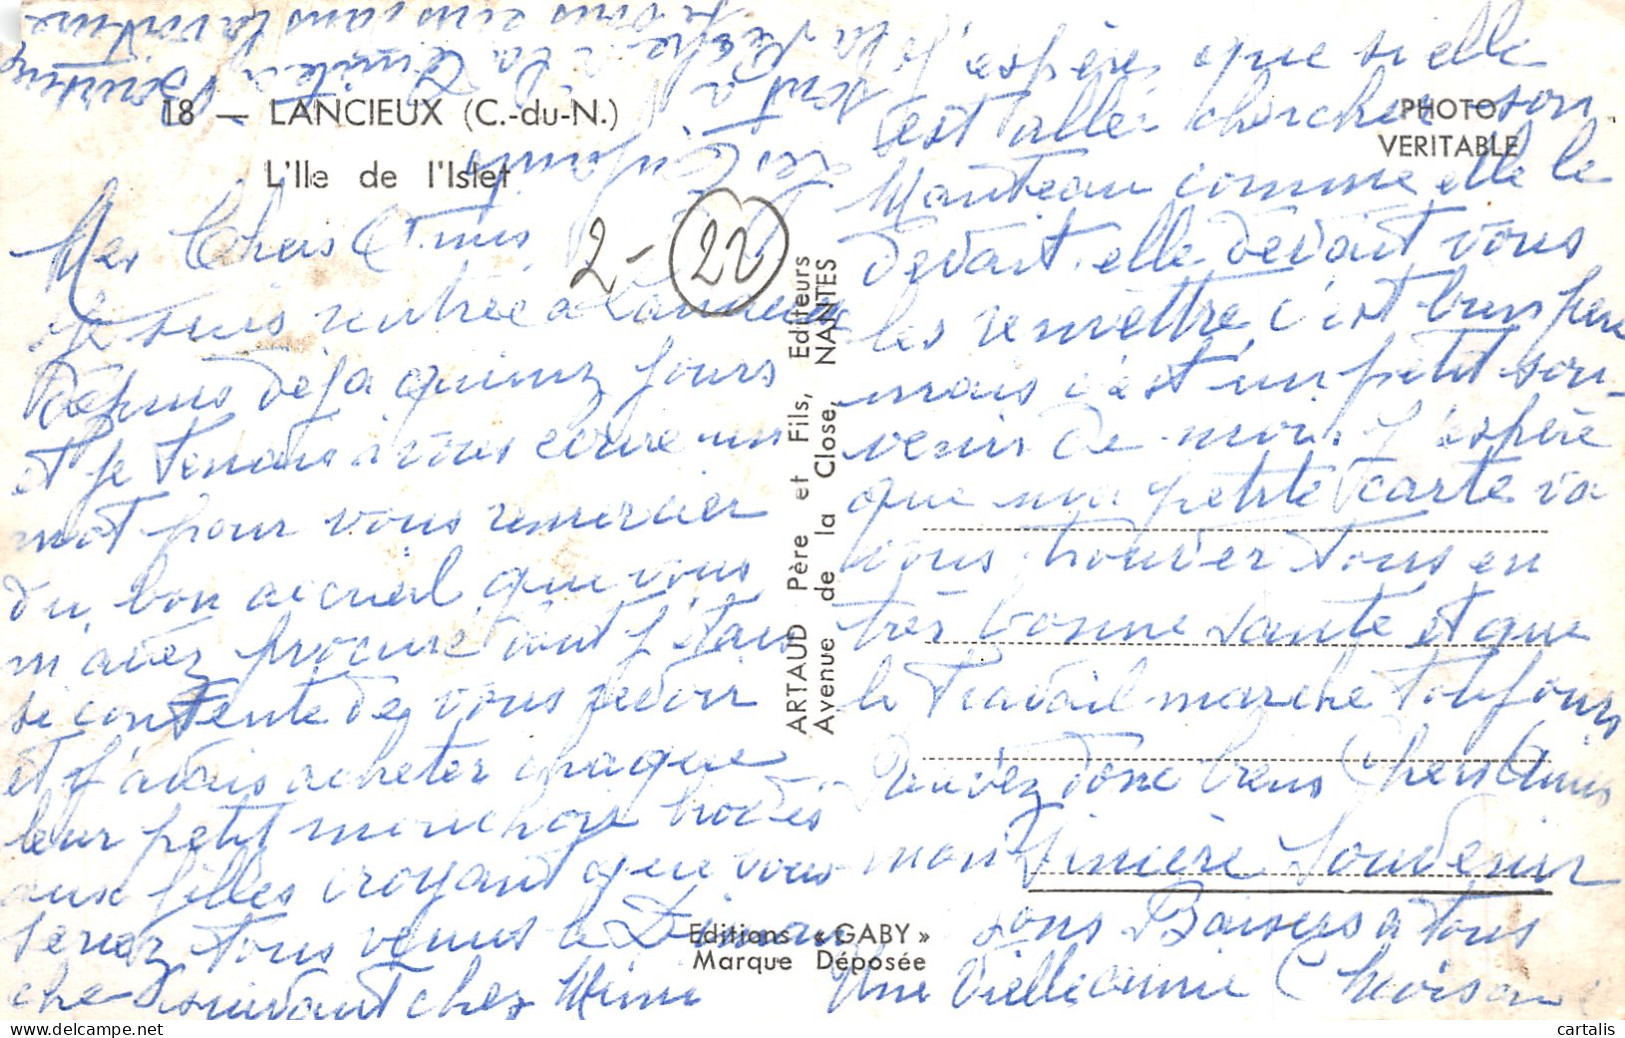 18 — LANCIEUX (C.-du-N.)
L'Ile de l'Islet
PHOTO
VERITABLE
2 - 22
Mes Chers Amis
Je suis rentrée a Lancieux
depuis déja quinz jours
et je tenais a vous ecrire un
mot pour vous remercier
du bon acceuil que vous
m'avez procure dont j'étais
si contente de vous revoir
et j'avais acheter chaque
leur petit mouchoir brodés
aux filles croyant que vous
seriez tous venus a Dinan
che suivant chez Mimi
j'espères que si elle
est aller chercher son
Manteau comme elle le
devait elle devait vous
les remettre c'est bien peu
mais c'est un petit sou-
venir de moi. J'espère
que ma petite carte va
vous trouver tous en
très bonne santé et que
le travail marche toujours
Recevez donc biens Chers Amis
mon sincère Souvenir
Bons Baisers a tous
Une Vielle amie
Les Enfants
sont a
la Pêche a la
je vous
dans la voiture
ARTAUD Père et Fils, Editeurs
Avenue de la Close, NANTES
Editions « GABY »
Marque Déposée
cartalis